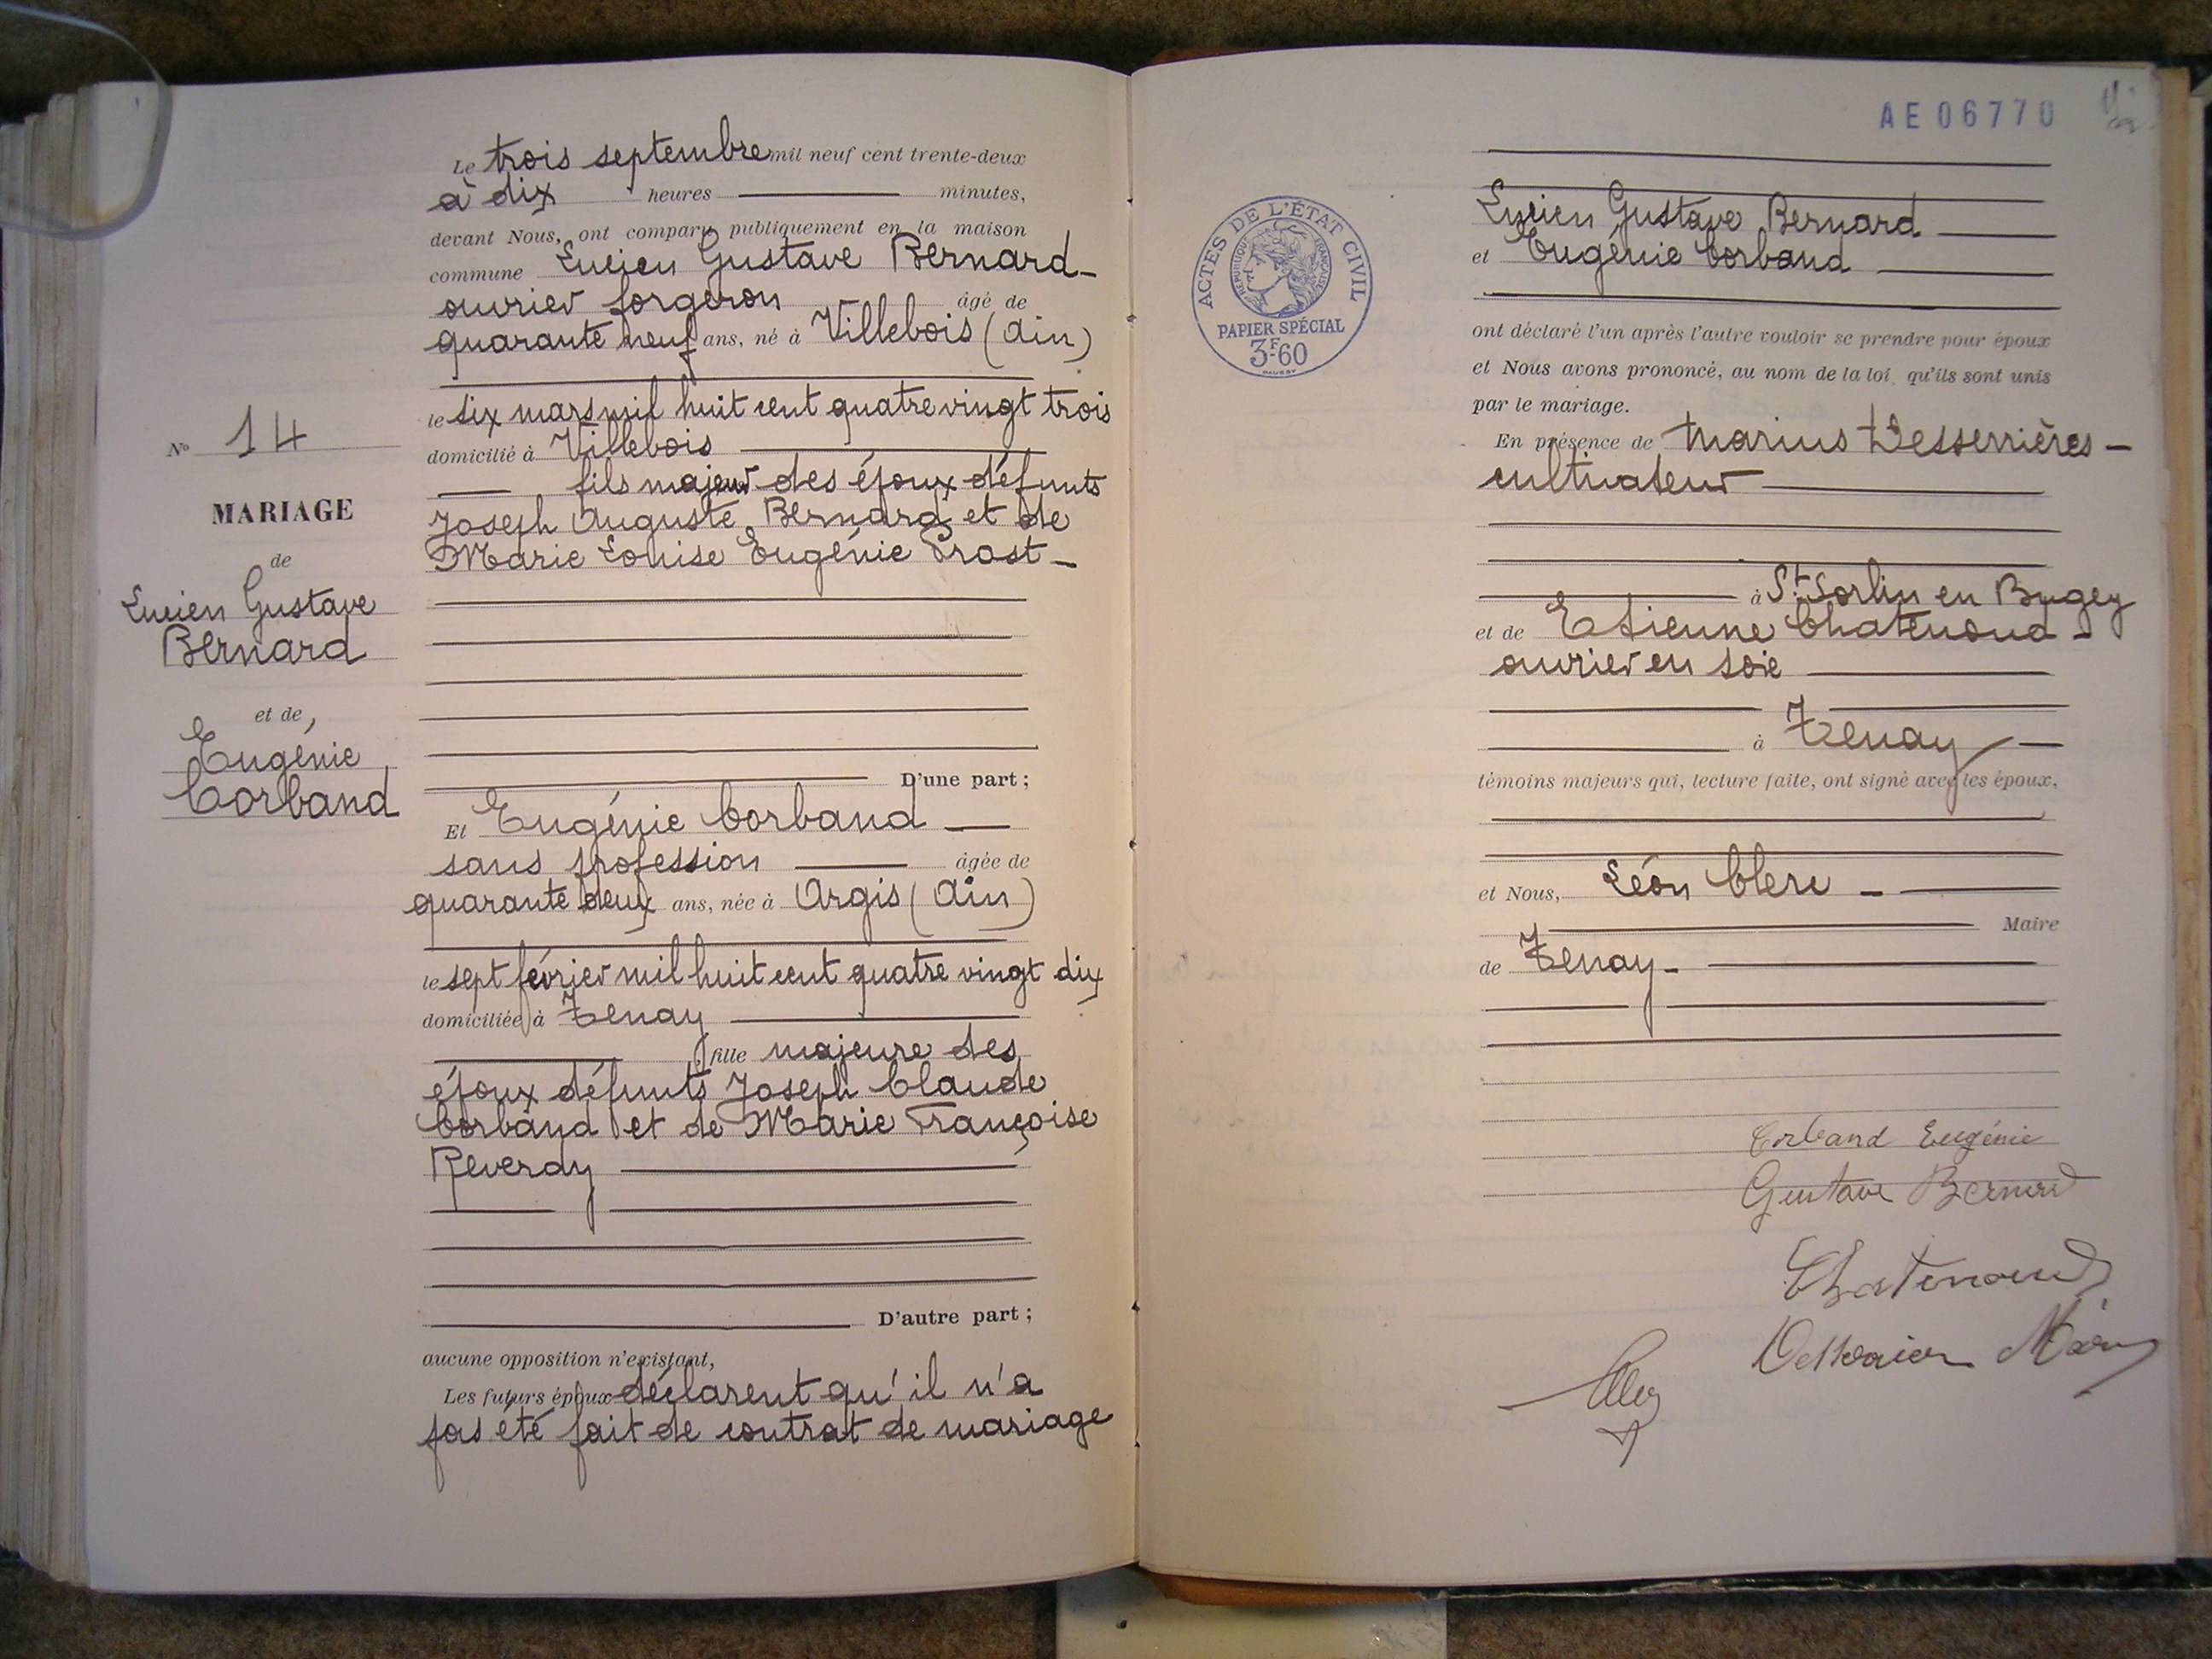 Le trois septembre mil neuf cent trente-deux
à dix heures minutes,
devant Nous, ont comparu publiquement en la maison
commune Lucien Gustave Bernard
ouvrier forgeron âgé de
quarante neuf ans, né à Villebois (Ain)
le six mars mil huit cent quatre vingt trois
domicilié à Villebois
fils majeur des époux défunts
Joseph Auguste Bernard et de
Marie Louise Eugénie Prost
D'une part ;
Et Eugénie Corband
sans profession âgée de
quarante deux ans, née à Argis (Ain)
le sept février mil huit cent quatre vingt dix
domiciliée à Tenay
fille majeure des
époux défunts Joseph Claude
Corband et de Marie Françoise
Reverdy
D'autre part ;
aucune opposition n'existant,
Les futurs époux déclarent qu'il n'a
pas été fait de contrat de mariage
No 14
MARIAGE
de
Lucien Gustave
Bernard
et de
Eugénie
Corband
AE 06770
ACTES DE L'ÉTAT CIVIL
RÉPUBLIQUE FRANÇAISE
PAPIER SPÉCIAL
3F60
Lucien Gustave Bernard
et Eugénie Corband
ont déclaré l'un après l'autre vouloir se prendre pour époux
et Nous avons prononcé, au nom de la loi, qu'ils sont unis
par le mariage.
En présence de Marius Desserrières
cultivateur
à St Sorlin en Bugey
et de Etienne Chatenoud
ouvrier en soie
à Tenay
témoins majeurs qui, lecture faite, ont signé avec les époux,
et Nous, Léon Clerc
Maire
de Tenay
Corband Eugénie
Gustave Bernard
Chatenoud